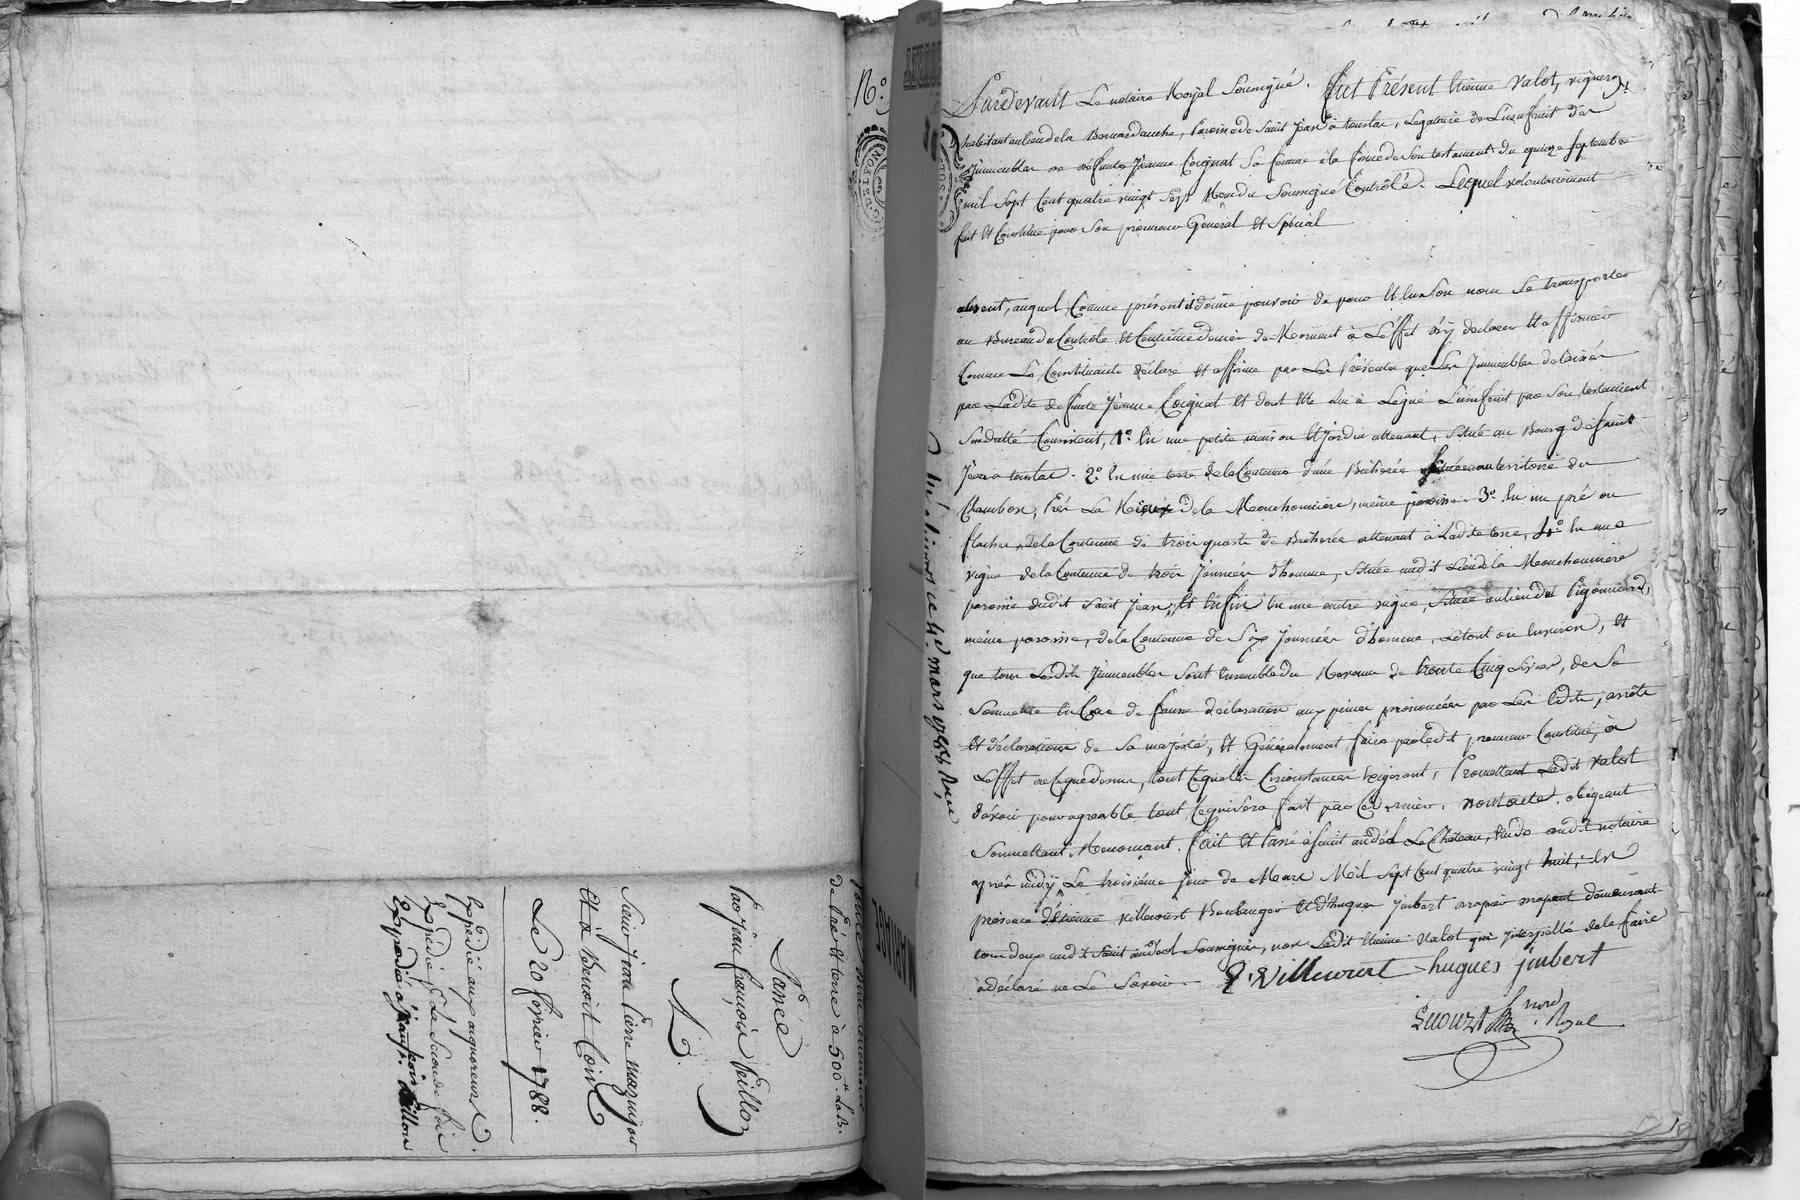 Vente sous
de Pré et terre à 500# L.B.
Passée
Par Jean françois feillon
A
Sieur Jean Pierre mazuyer
Et à Benoit Coin
Le 20 février 1788.
Expédié aux acquereurs
Expédié la Seconde fois
Expedié à jean françois feillon
N.°
MARIAGE
Pardevant Le notaire Royal Soussigné. fut Présent Etienne Valot, vigneron
habitant au lieu de la Bernardanche, Paroisse de Saint Jean à toulas, Legataire de L'usufruit des
Immeubles de defunte Jeanne Coignat Sa femme à la forme de Son testament du quinze Septembre
mil Sept Cent quatre vingt Sept Reçu du Soussigné Controlé. Lequel volontairement
fait Et Constitue pour Son procureur Général Et Spécial
absent, auquel Comme présent il donne pouvoir de pour Et En Son nom Se transporter
au Bureau du Controle Et Centième denier de Mornant à L'effet d'y declarer Et affirmer
Comme Le Constituant déclare Et affirme par Les Présentes que Les Immeubles delaissés
par Ladite defunte Jeanne Coignat Et dont Elle lui a Légué L'usufruit par Son testament
Susdatté Consistent, 1° En une petite maison Et jardin attenant, Située au Bourg de Saint
Jean à toulas. 2° En une terre de la Contenue d'une Bicherée Située au territoire du
Chambon, Près La de la Mouchonnière, même paroisse. 3° En un pré ou
flacher de la Contenue de trois quarts de Bicherée attenant à Ladite terre, 4° En une
vigne de la Contenue de trois Journées d'homme, Située audit Lieu de la Mouchonnière
paroisse dudit Saint Jean, Et Enfin En une autre vigne, Située au lieu du Pigonnard,
même paroisse, de la Contenue de Six Journées d'homme, Le tout ou Environ, Et
que tous Lesdits Immeubles Sont Ensemble du Revenu de trente Cinq Livres, de Se
Soumettre En Cas de fausse déclaration aux peines prononcées par Les Edits, arrêts
Et déclarations de Sa majesté, Et Généralement faire par Ledit procureur Constitué, à
L'effet de Ce que dessus, tout Ce que Les Circonstances Exigeront, Promettant Ledit Valot
d'avoir pour agreable tout Ce qui Sera fait par Ce dernier. obligeant
Soumettant, Renonçant. fait Et Passé à Saint andéol Le Château, Etude dudit notaire
après midy Le troisième jour de Mars Mil Sept Cent quatre vingt huit, En
présence d'Etienne Villecourt Boulanger Et d'hugues Jinbert demeurant
tous deux audit Saint andéol Soussignés, non Ledit Etienne Valot qui Interpellé de le faire
a déclaré ne Le Savoir.
E. Villecourt hugues jinbert
nore Royal
ce 4e mars 1788